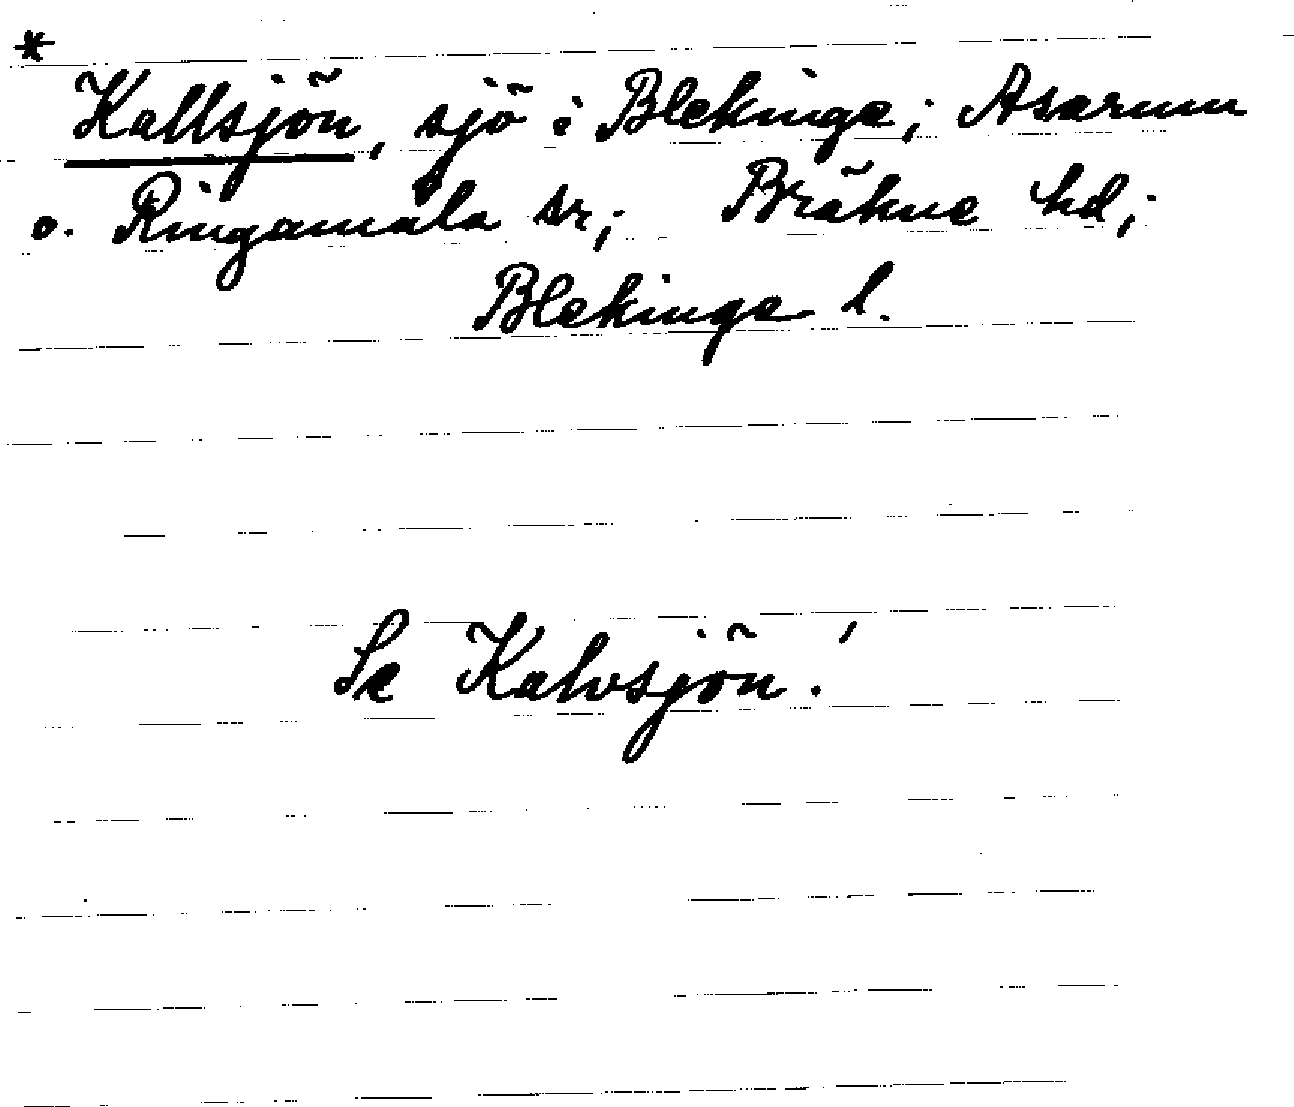 *
Kallsjön, sjö i Blekinge; Asarum
o. Ringamåla sr; Bräkne hd;
Blekinge l.
Se Kalvsjön!